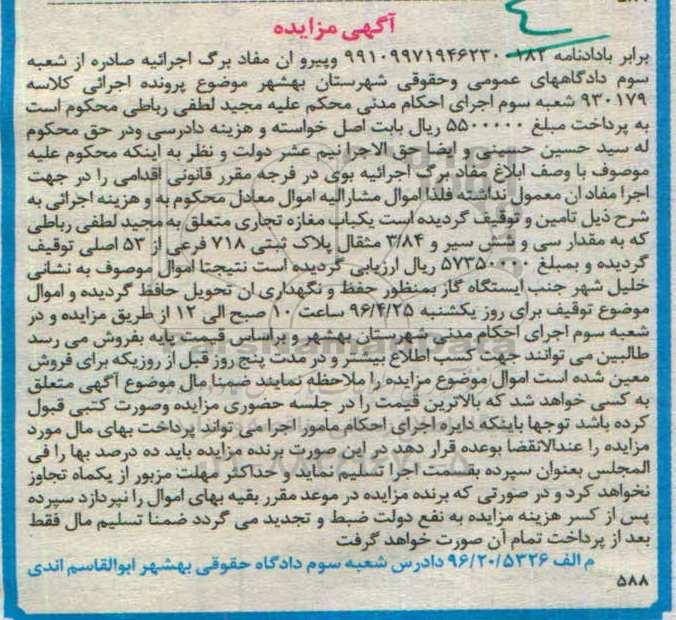 آگهی مزایده
برابر بادادنامه ۱۸۲-۹۹۱۰۹۹۷۱۹۴۶۲۳۰ وپیرو ان مفاد برگ اجرائیه صادره از شعبه
سوم دادگاههای عمومی وحقوقی شهرستان بهشهر موضوع پرونده اجرائی کلاسه
۹۳۰۱۷۹ شعبه سوم اجرای احکام مدنی محکم علیه مجید لطفی رباطی محکوم است
به پرداخت مبلغ ۵۵۰۰۰۰۰۰ ریال بابت اصل خواسته و هزینه دادرسی ودر حق محکوم
له سید حسین حسینی و ایضا حق الاجرا نیم عشر دولت و نظر به اینکه محکوم علیه
موصوف با وصف ابلاغ مفاد برگ اجرائیه بوی در فرجه مقرر قانونی اقدامی را در جهت
اجرا مفاد ان معمول نداشته فلذا اموال مشارالیه اموال معادل محکوم به و هزینه اجرائی به
شرح ذیل تامین و توقیف گردیده است یکباب مغازه تجاری متعلق به مجید لطفی رباطی
که به مقدار سی و شش سیر و ۳/۸۴ مثقال پلاک ثبتی ۷۱۸ فرعی از ۵۳ اصلی توقیف
گردیده و بمبلغ ۵۷۳۵۰۰۰۰ ریال ارزیابی گردیده است نتیجتا اموال موصوف به نشانی
خلیل شهر جنب ایستگاه گاز بمنظور حفظ و نگهداری ان تحویل حافظ گردیده و اموال
موضوع توقیف برای روز یکشنبه ۹۶/۴/۲۵ ساعت ۱۰ صبح الی ۱۲ از طریق مزایده و در
شعبه سوم اجرای احکام مدنی شهرستان بهشهر و براساس قیمت پایه بفروش می رسد
طالبین می توانند جهت کسب اطلاع بیشتر و در مدت پنج روز قبل از روزیکه برای فروش
معین شده است اموال موضوع مزایده را ملاحظه نمایند ضمنا مال موضوع آگهی متعلق
به کسی خواهد شد که بالاترین قیمت را در جلسه حضوری مزایده وصورت کتبی قبول
کرده باشد توجها باینکه دایره اجرای احکام مامور اجرا می تواند پرداخت بهای مال مورد
مزایده را عندالانقضا بوعده قرار دهد در این صورت برنده مزایده باید ده درصد بها را فی
المجلس بعنوان سپرده بقسمت اجرا تسلیم نماید و حداکثر مهلت مزبور از یکماه تجاوز
نخواهد کرد و در صورتی که برنده مزایده در موعد مقرر بقیه بهای اموال را نپردازد سپرده
پس از کسر هزینه مزایده به نفع دولت ضبط و تجدید می گردد ضمنا تسلیم مال فقط
بعد از پرداخت تمام آن صورت خواهد گرفت
م الف ۹۶/۲۰/۵۳۲۶ دادرس شعبه سوم دادگاه حقوقی بهشهر ابوالقاسم اندی
۵۸۸